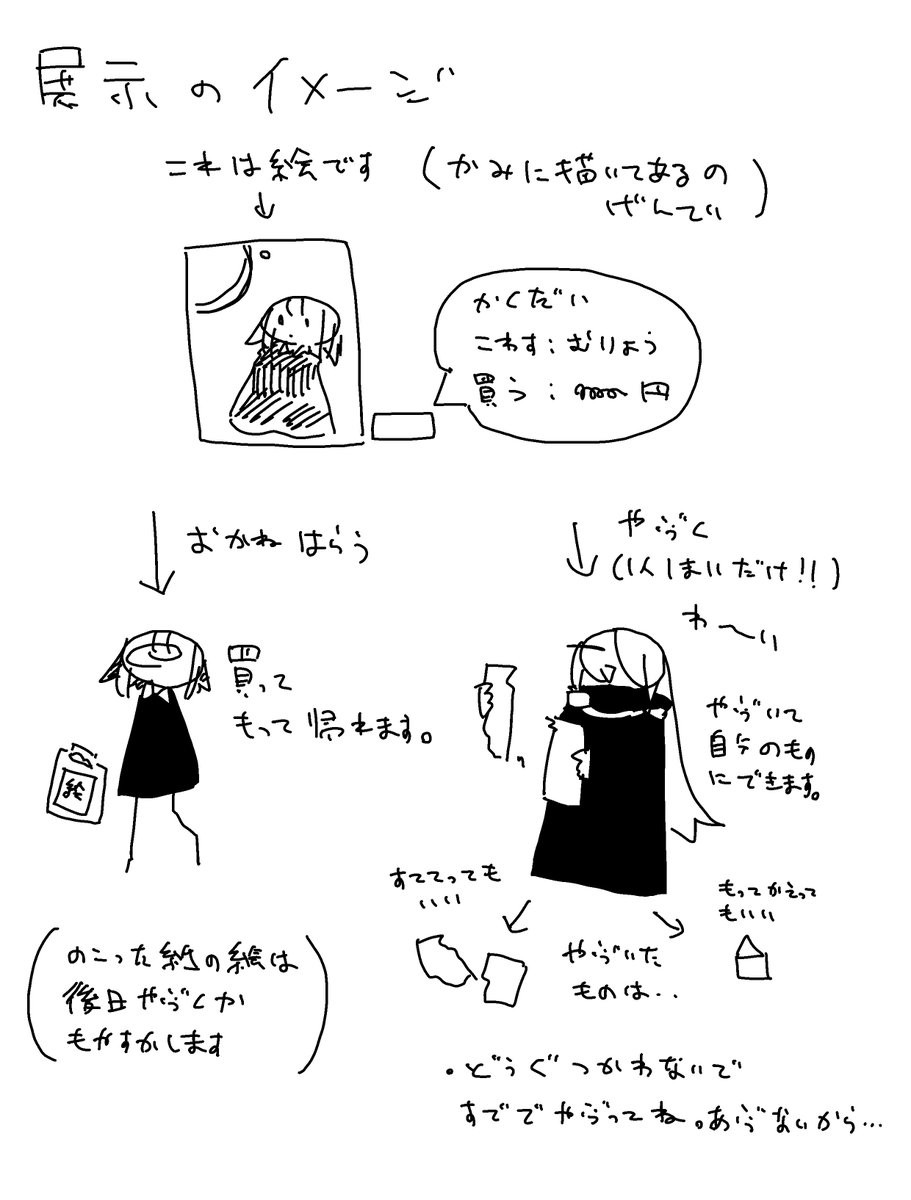 展示のイメージ
これは絵です
(かみに描いてあるの
げんてい)
かくだい
こわす:むりょう
買う:
円
おかねはらう
買って
もって帰れます。
絵
(のこった
の絵は
後日やぶくか
もやすかします)
やぶく
(1人1まいだけ!!)
わ〜い
やぶいて
自分のもの
にできます。
すててっても
いい
もってかえって
もいい
やぶいた
ものは..
・どうぐつかわないで
すでで
ね。あぶないから...